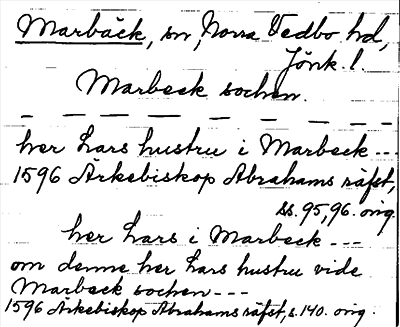 Marbäck, sn, Norra Vedbo hd,
Jönk. l.
Marbeck sochen.
— — — — — — — —
her Lars hustru i Marbeck ---
1596 Ärkebiskop Abrahams räfst,
ss. 95, 96. orig.
her Lars i Marbeck ---
om denne her Lars hustru vide
Marbeck sochen ---
1596 Ärkebiskop Abrahams räfst, s. 140. orig.